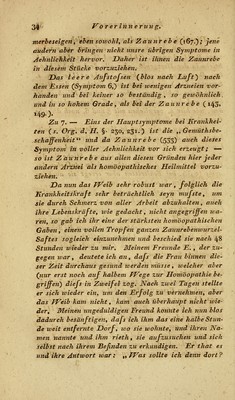 34 Vorerinnerung.
merbeseigen, eben sowohl, als Zaunrebe (167.); jene
andern aber bringen nicht unsre übrigen Symptome in
Aehnlichkeit hervor. Daher ist ihnen die Zaunrebe
in diesem Stücks vorzuziehen.
Das leere Aufstoſsen (blos nach Luft) nach
dem Essen (Symptom 6.) ist bei wenigen Arzneien vor-
handen und bei keiner so beständig, so gewöhnlich
und in so hohem Grade, als bei der Zaunrebe (143.
149.).
Zu 7. — Eins der Hauptsymptome bei Krankhei-
ten (s. Org. d. H. §. 230, 231.) ist die „Gemüthsbe-
schaffenheit“ und da Zaunrebe (535) auch dieses
Symptom in voller Aehnlichkeit vor sich erzeugt; —
so ist Zaunrebe aus allen diesen Gründen hier jeder
andern Arznei als homöopathisches Heilmittel vorzu-
ziehen.
Da nun das Weib sehr robust war, folglich die
Krankheitskraft sehr beträchtlich seyn muſste, um
sie durch Schmerz von aller Arbeit abzuhalten, auch
ihre Lebenskräfte, wie gedacht, nicht angegriffen wa-
ren, so gab ich ihr eine der stärksten homöopathischen
Gaben, einen vollen Tropfen ganzen Zaunrebenwurzel-
Saftes sogleich einzunehmen und beschied sie nach 48
Stunden wieder zu mir. Meinem Freunde E., der zu-
gegen war, deutete ich an, daſs die Frau binnen die-
ser Zeit durchaus gesund werden müsse, welcher aber
(nur erst noch auf halbem Wege zur Homöopathie be-
griffen) dieſs in Zweifel zog. Nach zwei Tagen stellte
er sich wieder ein, um den Erfolg zu vernehmen, aber
das Weib kam nicht, kam auch überhaupt nicht wie-
der. Meinen ungeduldigen Freund konnte ich nun blos
dadurch besänftigen, daſs ich ihm das eine halbe Stun-
de weit entfernte Dorf, wo sie wohnte, und ihren Na-
men nannte und ihm rieth, sie aufzusuchen und sich
selbst nach ihrem Befinden zu erkundigen. Er that es
und ihre Antwort war: „Was sollte ich denn dort?